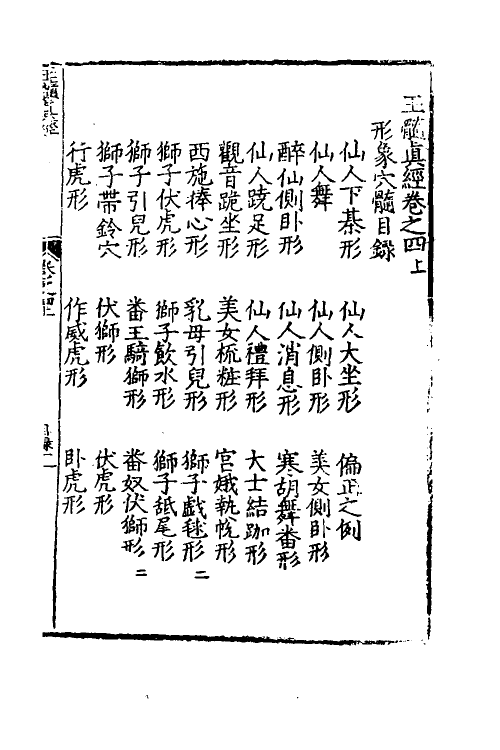 玉髓眞經卷之四上
形象穴髓目録
仙人下棊形 仙人大坐形 偏正之例
仙人舞 仙人側卧形 美女側卧形
醉仙側卧形 仙人消息形 寒胡舞番形
仙人跣足形 仙人禮拜形 大士結跏形
觀音跪坐形 美女梳粧形 宫娥執帨形
西施捧心形 乳母引兒形 獅子戯毬形二
獅子伏虎形 獅子飲水形 獅子舐尾形
獅子引兒形 番王騎獅形 番奴伏獅形二
獅子帶鈴穴 伏獅形 伏虎形
行虎形 作威虎形 卧虎形